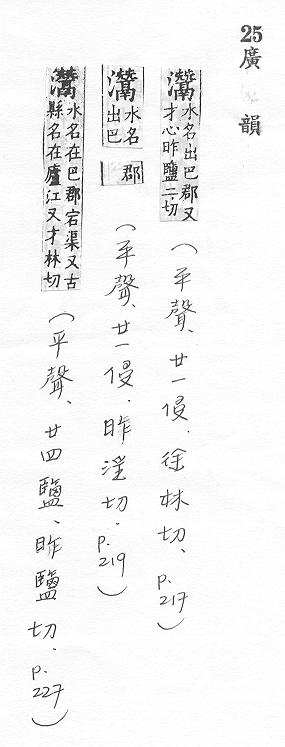 25廣韻
灊水名出巴郡又才心昨鹽二切(平聲、廿一侵、徐林切、p.217)
灊水名出巴郡(平聲、廿一侵、昨淫切、p.219)
灊水名在巴郡宕渠又古縣名在廬江又才林切(平聲、廿四鹽、昨鹽切、p.227)